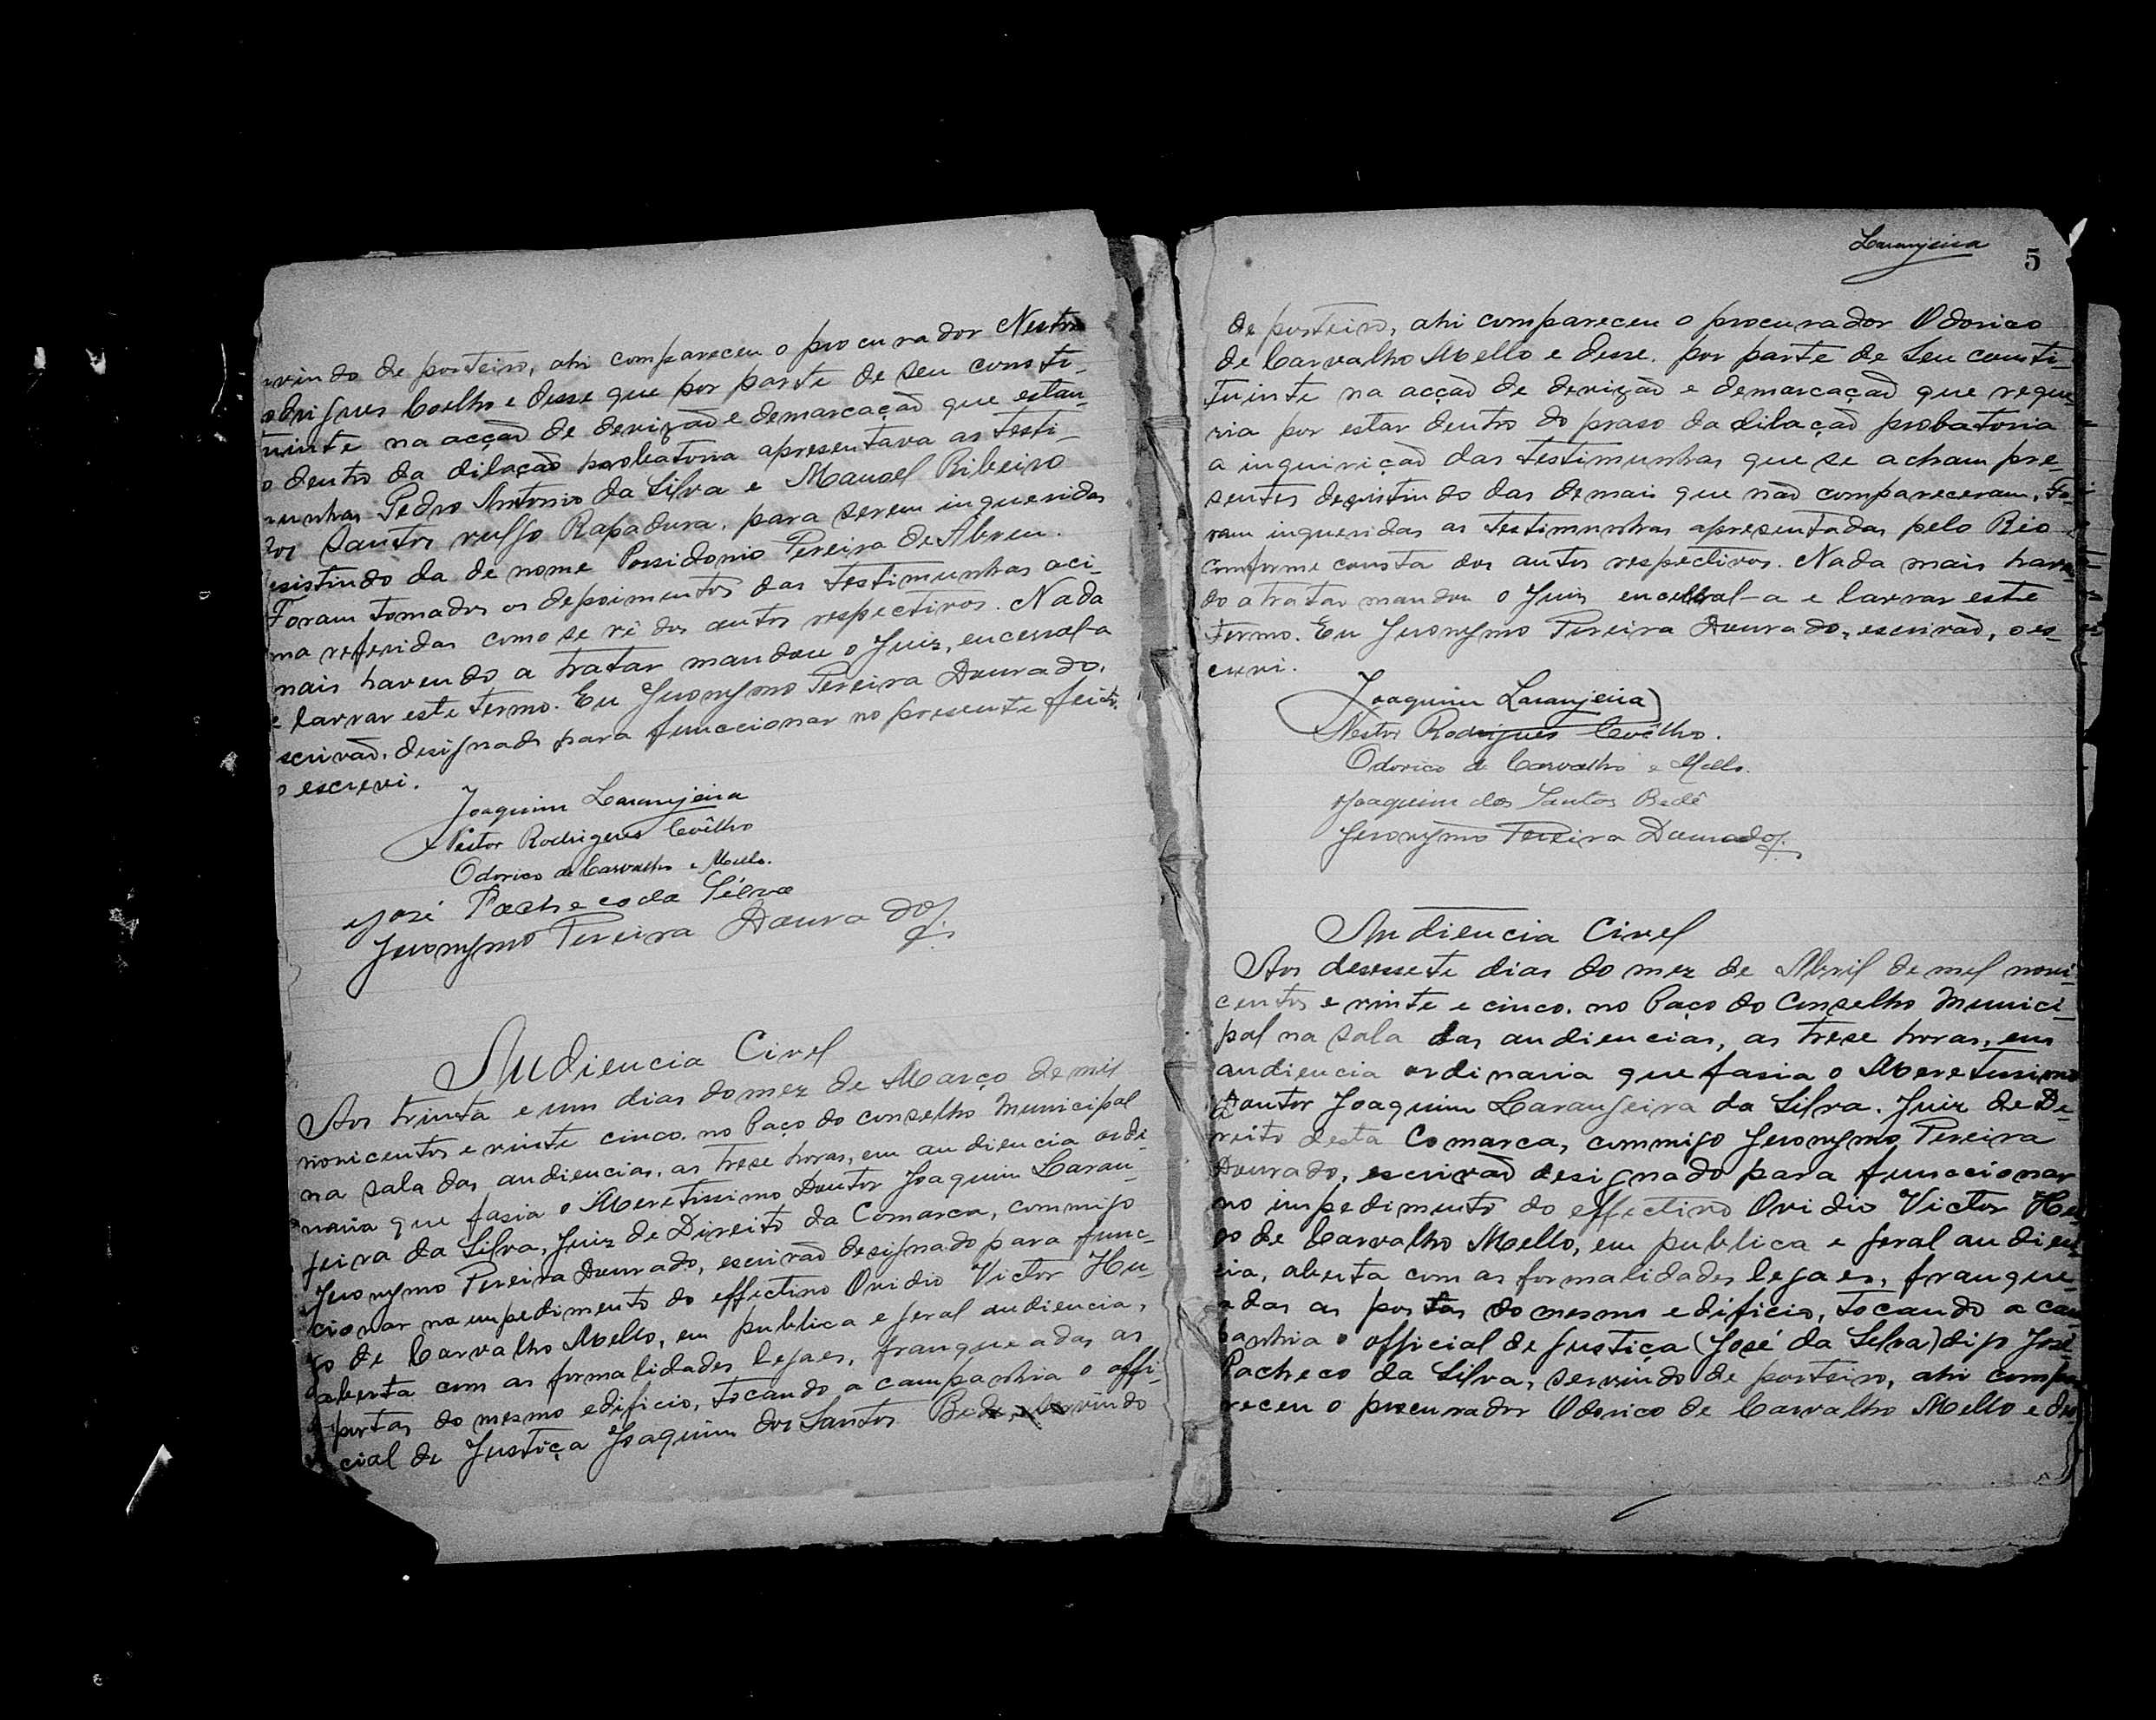 rvindo de porteiro, ahi compareceu o procurador Nestor
odrigues Coelho e disse que por parte de seu consti-
tuinte na acção de devizão e demarcação que estan-
o dentro da dilação probatoria apresentava as testi-
munhas Pedro Antonio da Silva e Manoel Ribeiro
dos Santos vulgo Rapadura, para serem inqueridas
esistindo da de nome Possidonio Pereira de Abreu.
Foram tomados os depoimentos das testimunhas aci-
ma referidas como se vê dos autos respectivos. Nada
mais havendo a tratar mandou o Juiz, encerral-a
e lavrar este termo. Eu Jeronymo Pereira Dourado,
scrivão, designado para funccionar no presente feito,
o escrevi.
Joaquim Laranjeira
Nestor Rodrigues Coêlho
Odorico de Carvalho e Mello.
José Pacheco da Silva
Jeronymo Pereira Dourado
Audiencia Civel
Aos trinta e um dias do mez de Março de mil
novicentos e vinte cinco, no Paço do conselho Municipal
na sala das audiencias, as trese horas, em audiencia ordi-
naria que fasia o Meretissimo Doutor Joaquim Laran-
jeira da Silva, Juiz de Direito da Comarca, commigo
Jeronymo Pereira Dourado, escrivão designado para func-
cionar no impedimento do effectivo Ovidio Victor Hu-
go de Carvalho Mello, em publica e geral audiencia,
aberta com as formalidades legaes, franqueadas as
portas do mesmo edificio, tocando a campanhia o offi-
cial de Justiça Joaquim dos Santos Bedê, servindo
Laranjeira
5
de porteiro, ahi compareceu o procurador Odorico
de Carvalho Mello e disse, por parte de seu consti-
tuinte na acção de devizão e demarcação que reque-
ria por estar dentro do praso da dilação probatoria
a inquirição das testimunhas que se acham pre-
sentes desistindo das demais que não compareceram. Fo-
ram inqueridas as testimunhas apresentadas pelo Réo
conforme consta dos autos respectivos. Nada mais haven-
do a tratar mandou o Juiz encerral-a e lavrar este
termo. Eu Jeronymo Pereira Dourado, escrivão, o es-
crevi.
Joaquim Laranjeira
Nestor Rodrigues Coêlho.
Odorico de Carvalho e Mello.
Joaquim dos Santos Bedê
Jeronymo Pereira Dourado
Audiencia Civel
Aos desessete dias do mez de Abril de mil novi-
centos e vinte e cinco, no Paço do Conselho Munici-
pal na sala das audiencias, as trese horas, em
audiencia ordinaria que fasia o Meretissimo
Doutor Joaquim Laranjeira da Silva, Juiz de Di-
reito desta Comarca, commigo Jeronymo Pereira
Dourado, escrivão designado para funccionar
no impedimento do effectivo Ovidio Victor Hu-
go de Carvalho Mello, em publica e geral audien-
cia, aberta com as formalidades legaes, franque-
adas as portas do mesmo edificio, tocando a cam-
panhia o official de justiça (José da Silva) digo José
Pacheco da Silva, servindo de porteiro, ahi compa-
receu o procurador Odorico de Carvalho Mello e dis